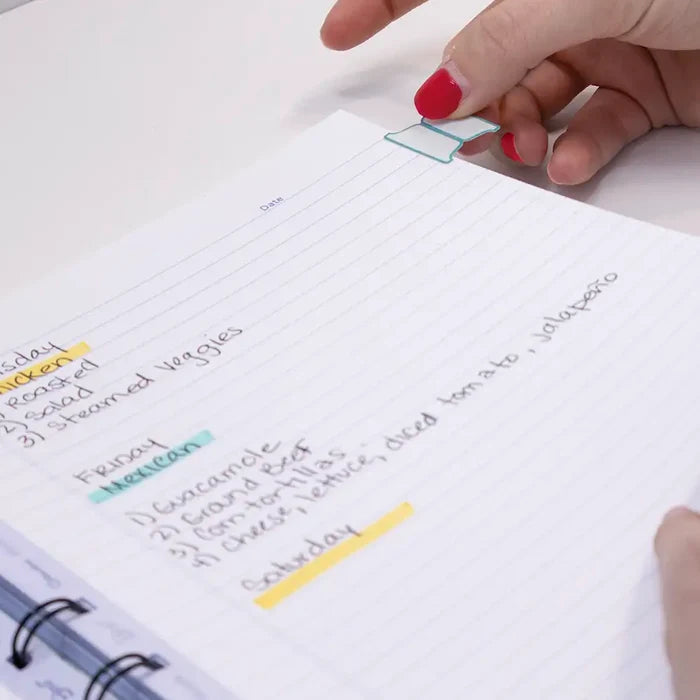 Date
sday
hicken
1) Roasted
2) Salad
3) Steamed Veggies
Friday
Mexican
1) Guacamole
2) Ground Beef
3) Corn tortillas
4) Cheese, lettuce, diced tomato, Jalapeño
Saturday